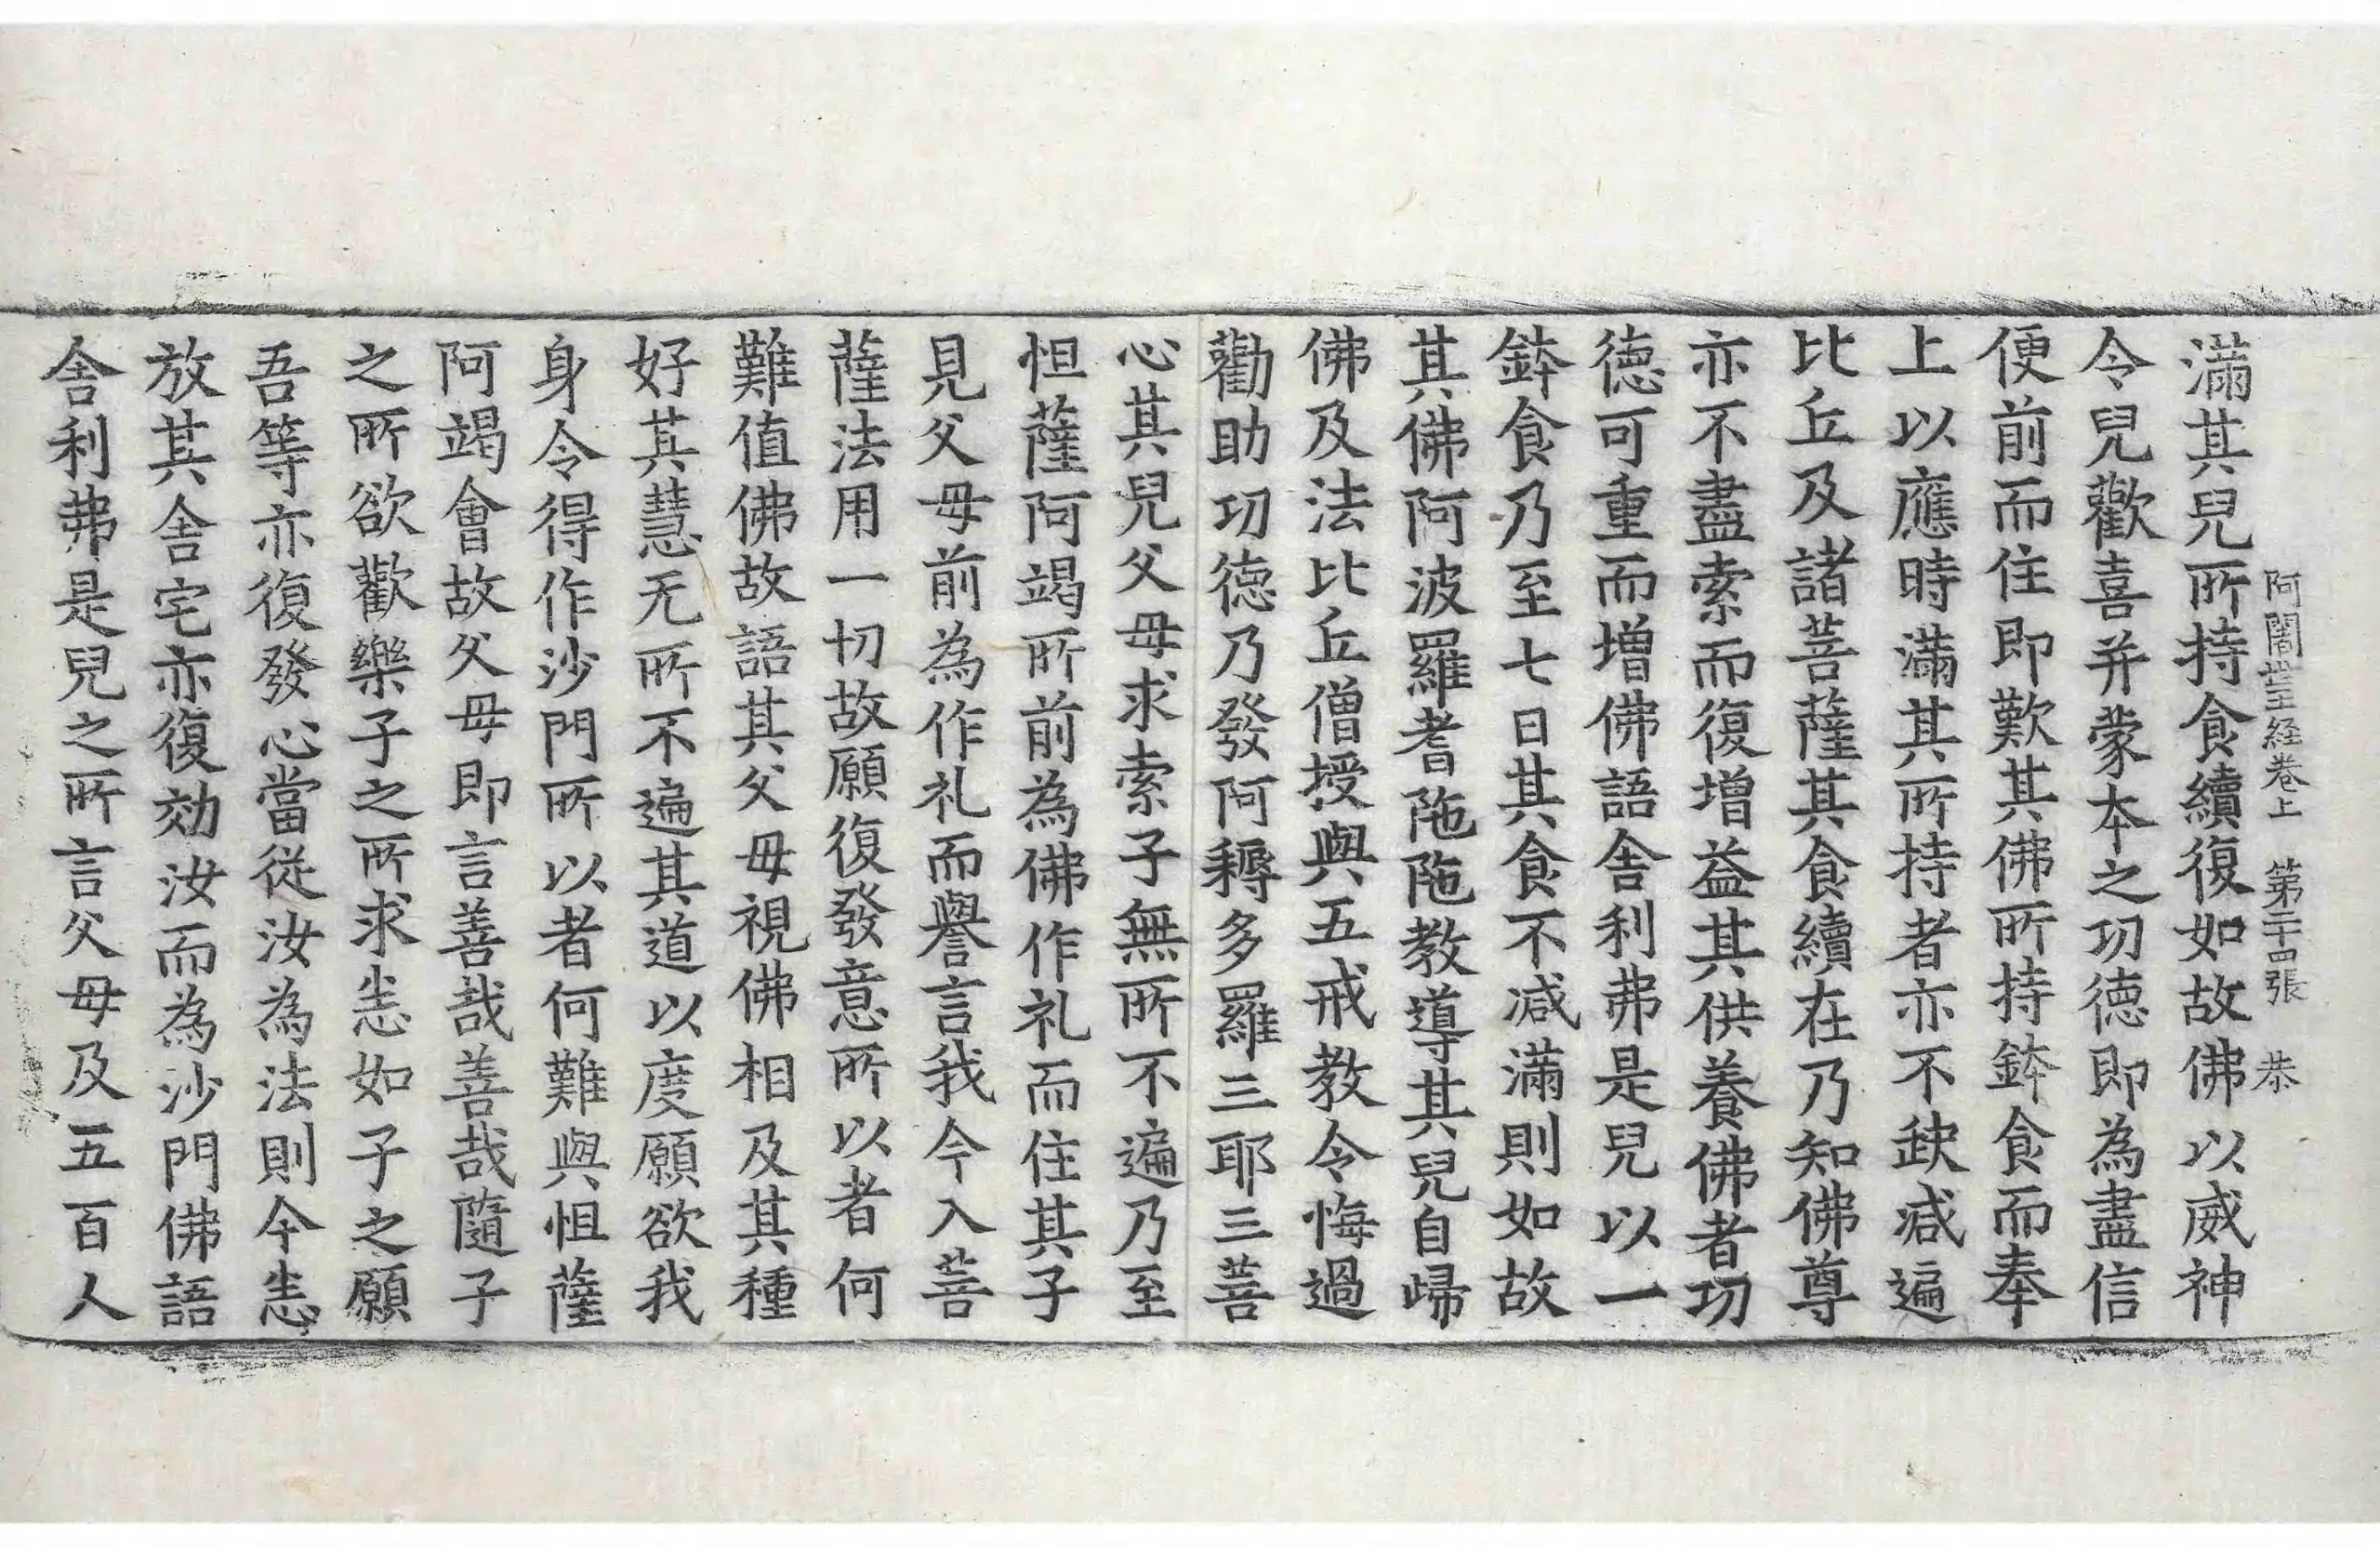 阿闍世王経卷上　第二十四張　恭
滿其兒所持食續復如故佛以威神
令兒歡喜并蒙本之功德即為盡信
便前而住即歎其佛所持鉢食而奉
上以應時滿其所持者亦不缺減遍
比丘及諸菩薩其食續在乃知佛尊
亦不盡索而復增益其供養佛者功
德可重而增佛語舎利弗是兒以一
鉢食乃至七日其食不減滿則如故
其佛阿波羅耆陁陁教導其兒自歸
佛及法比丘僧授與五戒教令悔過
勸助功德乃發阿耨多羅三耶三菩
心其兒父母求索子無所不遍乃至
怛薩阿竭所前為佛作礼而住其子
見父母前為作礼而譽言我今入菩
薩法用一切故願復發意所以者何
難值佛故語其父母視佛相及其種
好其慧无所不遍其道以度願欲我
身令得作沙門所以者何難與怛薩
阿竭會故父母即言善哉善哉隨子
之所欲歡樂子之所求恙如子之願
吾等亦復發心當從汝為法則今恙
放其舎宅亦復効汝而為沙門佛語
舎利弗是兒之所言父母及五百人